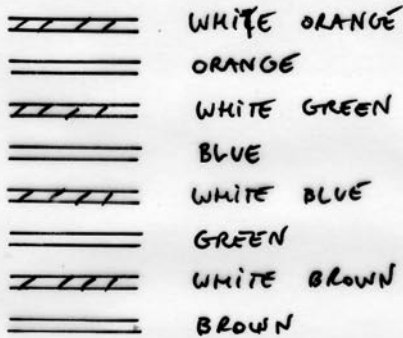 WHITE ORANGE
ORANGE
WHITE GREEN
BLUE
WHITE BLUE
GREEN
WHITE BROWN
BROWN